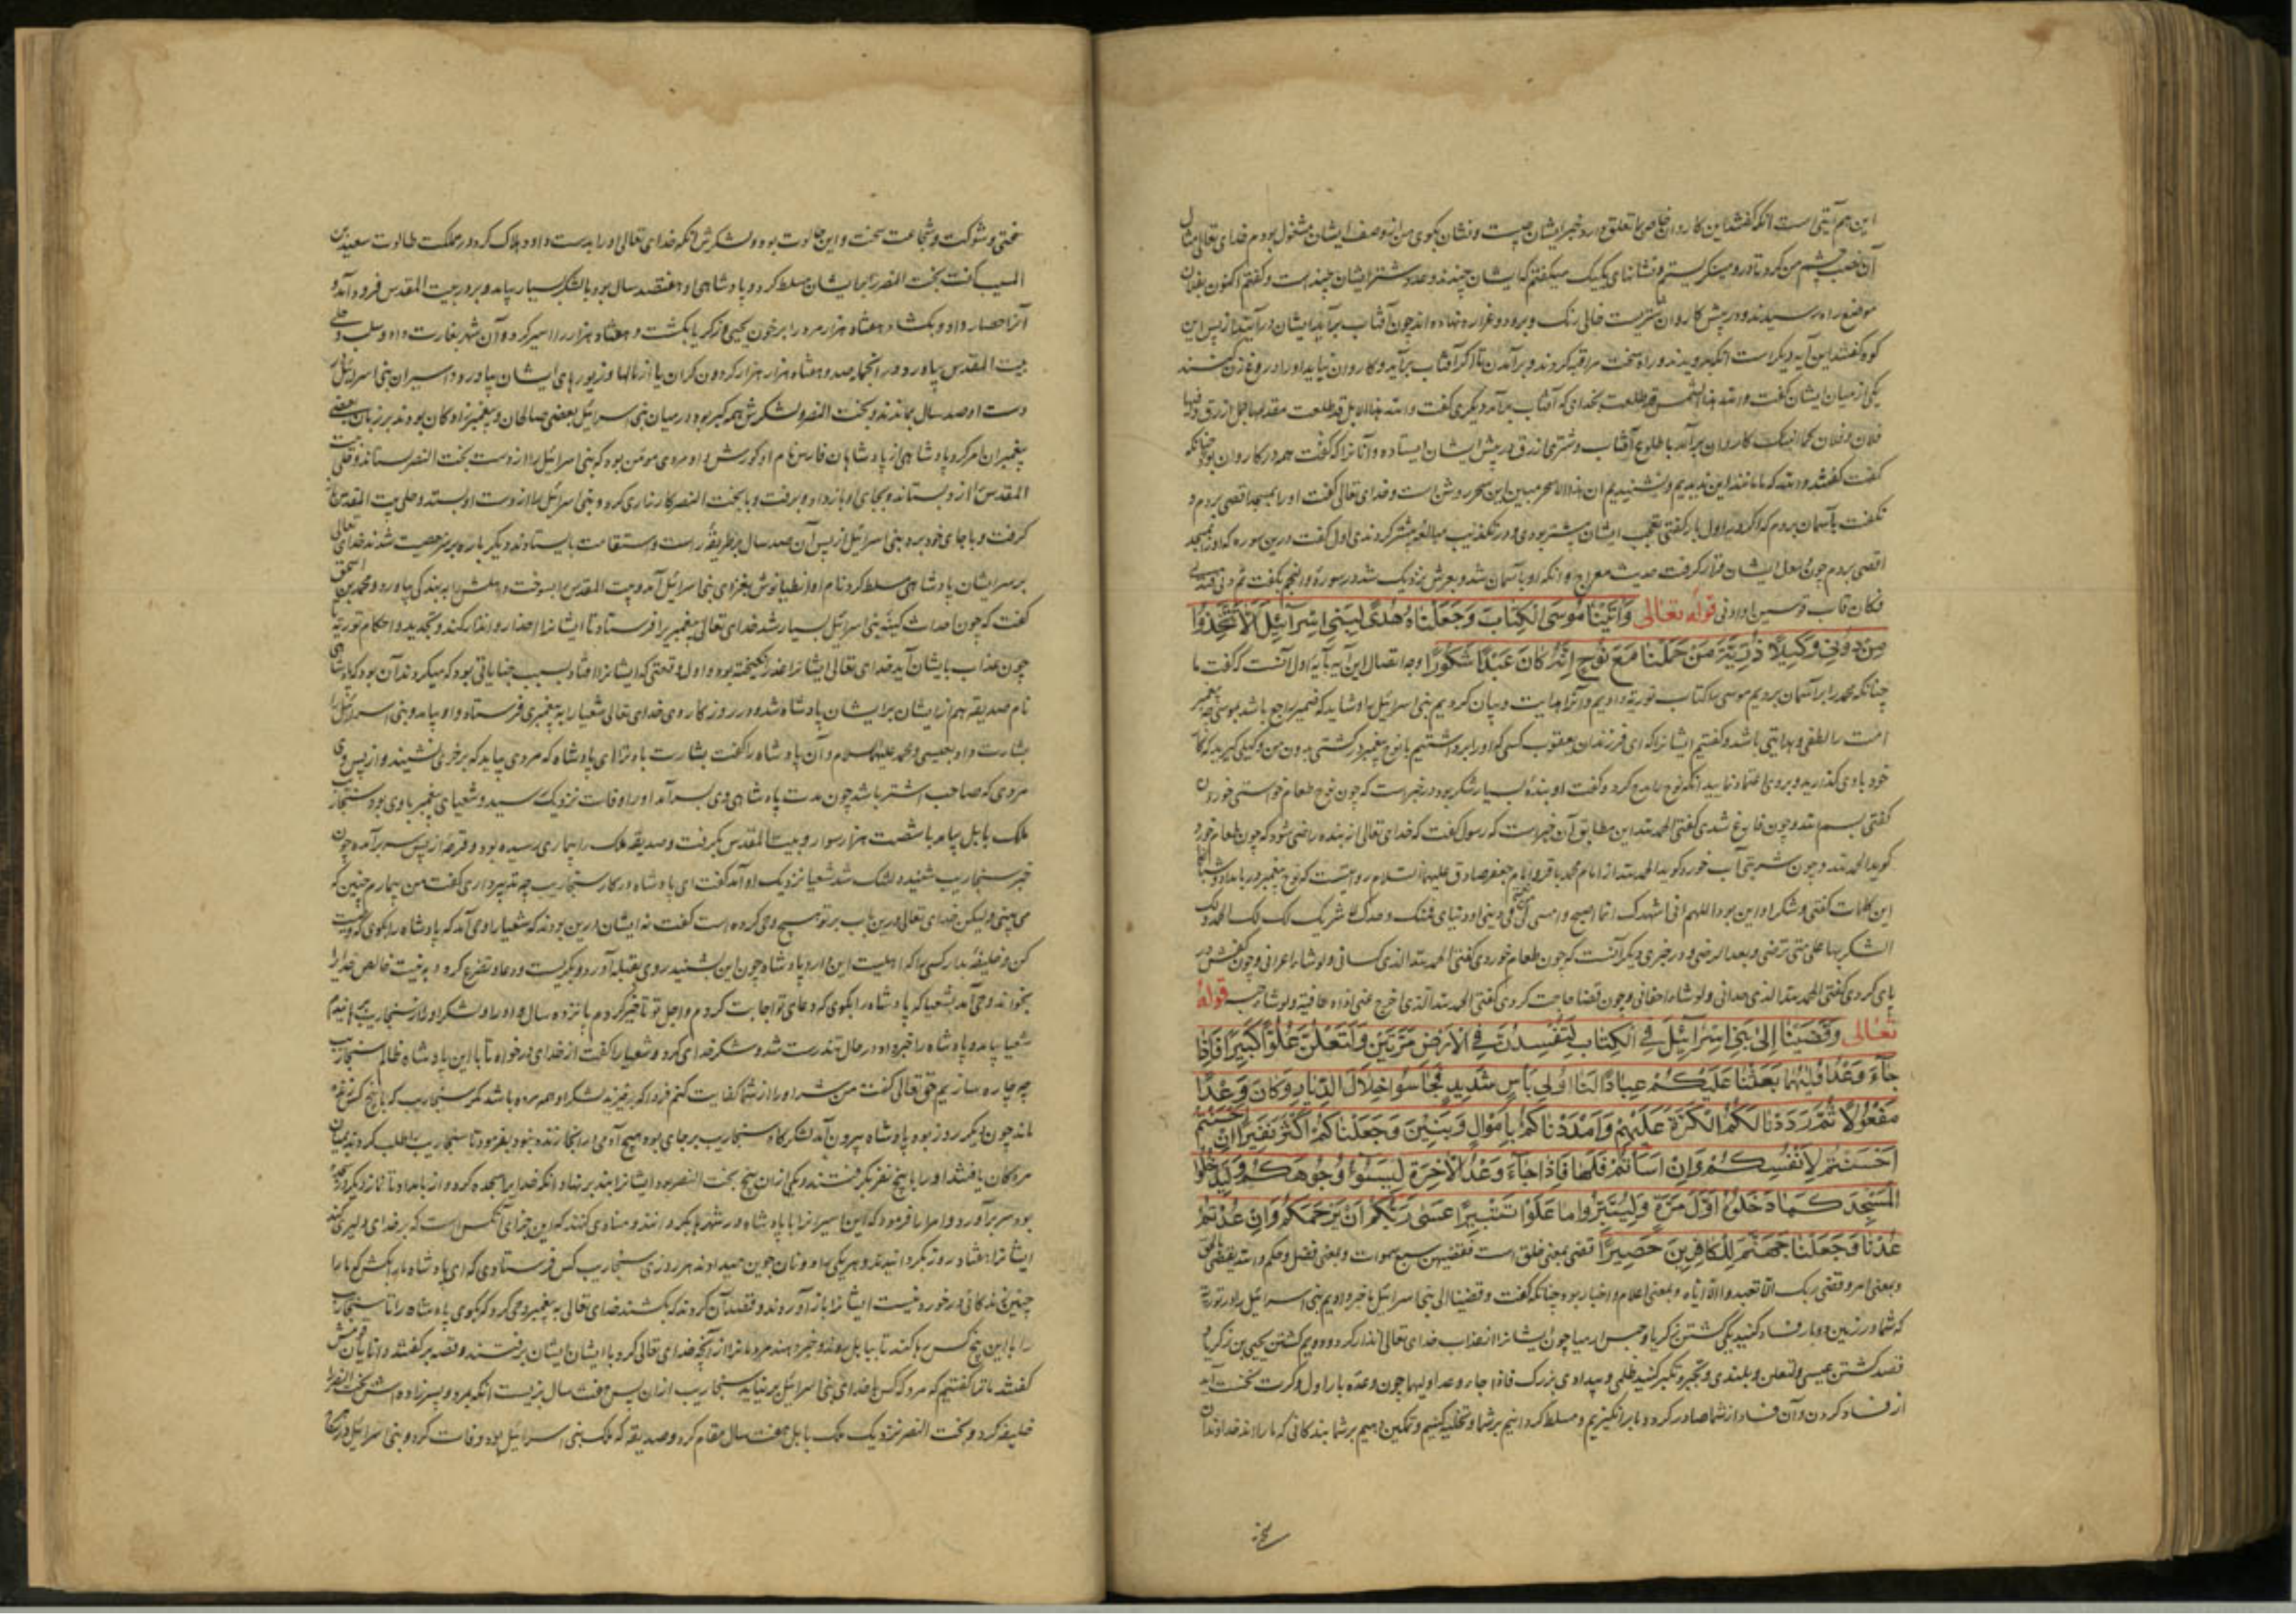 این هم آیتی است آنکه گفتند این کاروان خاص ما تعلق دارد خبر ایشان چیست و نشان بگوی من از وصف ایشان مشغول بودم خدای تعالی مثال
آن نصب چشم من کرد تا درو مینگریستم و نشانهای یکیک میگفتم که ایشان چندند و عدد شتر ایشان چندست و گفتم اکنون بفلان
موضع راه رسیدند و در پیش کاروان شتریست خاکی رنگ و برو دو غراره نهاده اند چون آفتاب برآید ایشان درآیند از پس این
کوه گفتند این آیه دیگر است آنکه بدویدند و راه سخت مراقبه کردند و برآمدن تا اگر آفتاب برآید و کاروان نیاید او را دروغ زن کنند
یکی از میان ایشان گفت والله هذا الشمس قد طلعت بخدای که آفتاب برآمد دیگری گفت والله هذا الابل قد طلعت یقدمها جمل ازرق فیها
فلان و فلان کاروان برآمد با طلوع آفتاب و شتری ازرق در پیش ایشان ایستاده و آنانرا که گفت همه در کاروان بود چنانکه
گفت گفتند والله که ما مانند این ندیدیم و نشنیدیم ان هذا الا سحر مبین این سحر روشن است و خدای تعالی گفت او را بمسجد اقصی بردم و
نگفت بآسمان بردم که اگر اول بار گفتی تعجب ایشان بیشتر بودی و در تکذیب مبالغه بیشتر کردندی اول گفت درین سوره که او را بمسجد
اقصی بردم چون بدل ایشان قرار گرفت حدیث معراج و آنکه او بآسمان شد و بعرش نزدیک شد در سورة والنجم بگفت ثم دنی فتدلی
فکان قاب قوسین او ادنی قوله تعالی وَآتَيْنَا مُوسَى الْكِتَابَ وَجَعَلْنَاهُ هُدًى لِبَنِي إِسْرَائِيلَ أَلَّا تَتَّخِذُوا
مِنْ دُونِي وَكِيلًا ذُرِّيَّةَ مَنْ حَمَلْنَا مَعَ نُوحٍ إِنَّهُ كَانَ عَبْدًا شَكُورًا وجه اتصال این آیه بآیه اول آنست که گفت ما
چنانکه محمد را بر آسمان بردیم موسی را کتاب توریة دادیم و آنرا هدایت و بیان کردیم بنی اسرائیل را و شاید که ضمیر راجع باشد بموسی چه پیغمبر
امت را لطفی و هدایتی باشد و گفتیم ایشانرا که ای فرزندان یعقوب کسی که او را برداشتیم با نوح پیغمبر در کشتی بدون من وکیلی گیرید که کار
خود با وی گذارید و بروی اعتماد نمایید آنکه نوح را مدح کرد و گفت او بندۀ بسیار شکر بود و در خبر است که چون نوح طعام خواستی خوردن
گفتی بسم الله و چون فارغ شدی گفتی الحمد لله این مطابق آن خبر است که رسول گفت که خدای تعالی از بنده راضی شود که چون طعام خورد
گوید الحمد لله و چون شربتی آب خورد گوید الحمد لله از امام محمد باقر و امام جعفر صادق علیهما السلام روایتست که نوح پیغمبر در بامداد و شبانگاه
این کلمات گفتی و شکر او این بود اللهم انی اشهدک انما اصبح و امسی بی فی دینی او دنیای فمنک وحدک لا شریک لک لک الحمد ولک
الشکر بها علی حتی ترضی و بعد الرضی و در خبری دیگر آنست که چون طعام خوردی گفتی الحمد لله الذی کسانی ولو شاء اعرانی و چون کفش در
پای کردی گفتی الحمد لله الذی حذانی ولو شاء احفانی و چون قضا حاجت کردی گفتی الحمد لله الذی اخرج عنی اذاه عافیة ولو شاء حبسه قوله
تعالی وَقَضَيْنَا إِلَى بَنِي إِسْرَائِيلَ فِي الْكِتَابِ لَتُفْسِدُنَّ فِي الْأَرْضِ مَرَّتَيْنِ وَلَتَعْلُنَّ عُلُوًّا كَبِيرًا فَإِذَا
جَاءَ وَعْدُ أُولَاهُمَا بَعَثْنَا عَلَيْكُمْ عِبَادًا لَنَا أُولِي بَأْسٍ شَدِيدٍ فَجَاسُوا خِلَالَ الدِّيَارِ وَكَانَ وَعْدًا
مَفْعُولًا ثُمَّ رَدَدْنَا لَكُمُ الْكَرَّةَ عَلَيْهِمْ وَأَمْدَدْنَاكُمْ بِأَمْوَالٍ وَبَنِينَ وَجَعَلْنَاكُمْ أَكْثَرَ نَفِيرًا إِنْ أَحْسَنْتُمْ
أَحْسَنْتُمْ لِأَنْفُسِكُمْ وَإِنْ أَسَأْتُمْ فَلَهَا فَإِذَا جَاءَ وَعْدُ الْآخِرَةِ لِيَسُوءُوا وُجُوهَكُمْ وَلِيَدْخُلُوا
الْمَسْجِدَ كَمَا دَخَلُوهُ أَوَّلَ مَرَّةٍ وَلِيُتَبِّرُوا مَا عَلَوْا تَتْبِيرًا عَسَى رَبُّكُمْ أَنْ يَرْحَمَكُمْ وَإِنْ عُدْتُمْ
عُدْنَا وَجَعَلْنَا جَهَنَّمَ لِلْكَافِرِينَ حَصِيرًا قضی بمعنی خلق است فقضیهن سبع سموات و بمعنی فصل و حکم والله یقضی بالحق
و بمعنی امر و قضی ربک الا تعبدوا الا ایاه و بمعنی اعلام و اخبار بود چنانکه گفت و قضینا الی بنی اسرائیل ما خبر دادیم بنی اسرائیل را در توریة
که شما در زمین دوبار فساد کنید یکی کشتن زکریا و حبس ارمیا چون ایشانرا از عذاب خدای تعالی انذار کرد و دویم کشتن یحیی بن زکریا و
قصد کشتن عیسی و لتعلن و بلندی و تجبر و تکبر کنید ظلمی و بیدادی بزرگ فاذا جاء وعد اولیهما چون وعدۀ بار اول و کرت نخست آید
از فساد کردن و آن فساد از شما صادر گردد ما برانگیزیم و مسلط گردانیم بر شما و تخلیه کنیم و تمکین دهیم بر شما بندگانی که ما را اند خداوندان
سختی و شوکت و شجاعت سخت و این جالوت بود و لشکرش آنکه خدای تعالی او را بدست داود هلاک کرد در مملکت طالوت سعید بن
المسیب گفت بخت النصر را بر ایشان مسلط کرد و پادشاهی او هفتصد سال بود با لشکر بسیار بیامد و بر در بیت المقدس فرود آمد و
آنرا حصار داد و بگشاد هفتاد هزار مرد را بر خون یحیی زکریا بکشت و هفتاد هزار را اسیر کرد و آن شهر بغارت داد و سلب و حلی
بیت المقدس بیاورد و صد و هفتاد هزار هزار گردون گران بار از مالها و زیورهای ایشان بیاورد و اسیران بنی اسرائیل در
دست او صد سال بماندند و بخت النصر و لشکرش همه گبر بود در میان بنی اسرائیل بعضی صالحان و پیغمبرزادگان بودند بر زبان بعضی
پیغمبران امر کرد پادشاهی از پادشاهان فارس نام او کورش و او مردی مومن بود که بنی اسرائیل را از دست بخت النصر بستاند و حلی بیت
المقدس از وی بستاند و بجای او باز داد و برفت و با بخت النصر کارزاری کرد و بنی اسرائیل را از دست او بستد و حلی بیت المقدس باز
گرفت و با جای خود برد بنی اسرائیل از پس آن صد سال بر طریقۀ راست و استقامت بایستادند و دیگر باره بر سر معصیت شدند خدای تعالی
بر سر ایشان پادشاهی مسلط کرد نام او انطیانوش بغزای بنی اسرائیل آمد و بیت المقدس بسوخت و اهلش را به بندگی بیاورد و محمد بن اسحق
گفت که چون احداث بنی اسرائیل بسیار شد خدای تعالی پیغمبر را فرستاد تا ایشانرا اعذار و انذار کند و تجدید و احکام توریة تا
چون عذاب بایشان آید خدای تعالی ایشانرا عذر انگیخته بود و اول وقعتی که ایشانرا افتاد بسبب جنایاتی بود که میکردند آن بود که پادشاهی
نام صدیقه هم از ایشان بر ایشان پادشاه شد و در روزگار وی خدای تعالی شعیا را به پیغمبری فرستاد و او بیامد و بنی اسرائیل را
بشارت داد بعیسی و محمد علیهما السلام و آن پادشاه را گفت بشارت باد ترا ای پادشاه که مردی بیاید که بر خری نشیند و از پس وی
مردی که صاحب اشتر باشد چون مدت پادشاهی وی بسر آمد او را وفات نزدیک رسید و شعیای پیغمبر باوی بود سنجاریب
ملک بابل بیامد با شصت هزار سوار و بیت المقدس بگرفت و صدیقه ملک را بیماری رسیده بود و قرحۀ از پس سر برآمده چون
خبر سنجاریب شنید دلتنگ شد شعیا نزدیک او آمد گفت ای پادشاه در کار سنجاریب چه تدبیر داری گفت من بیمارم چنین که
می بینی ولیکن خدای تعالی درین باب بر تو هیچ وحی کرده است گفت نه ایشان درین بودند که شعیا را وحی آمد که پادشاه را بگوی که وصیت
کن و خلیفۀ بدار کسی را که اهلیت این دارد پادشاه چون این بشنید روی بقبله آورد و بگریست و دعا و تضرع کرد و به نیت خالص خدای را
بخواند وحی آمد بشعیا که پادشاه را بگوی که دعای تو اجابت کردم و اجل تو تاخیر کردم پانزده سال و او را و لشکر او را از سنجاریب برهانیدم
شعیا بیامد و پادشاه را خبر داد در حال تندرست شد و شکر خدای کرد و شعیا را گفت از خدای درخواه تا با این پادشاه ظالم سنجاریب
چه چاره سازیم حق تعالی گفت من شر او را از شما کفایت کنم فردا که برخیزند لشکر او همه مرده باشد مگر سنجاریب که با پنج کس زنده
ماند چون دیگر روز بود پادشاه بیرون آمد لشکرگاه سنجاریب بر جای بود هیچ آدمی از آنجا زنده نبود بفرمود تا سنجاریب را طلب کردند میان
مردگان یافتند او را با پنج نفر بگرفتند و یکی از آن پنج بخت النصر بود ایشانرا بند بر نهاد آنکه خدایرا سجده کرد و از بامداد تا نماز دیگر در سجده
بود سر برآورد و امرا را فرمود که این اسیرانرا با پادشاه در شهرها بگردانند و منادی کنند که این جزای آنکس است که بر خدای دلیری کند
ایشانرا هفتاد روز بگردانیدند و هر یکی را دو نان جوین میدادند هر روزی سنجاریب کس فرستادی که ای پادشاه ما را بکش که ما را
چنین زندگانی در خورد نیست ایشانرا باز آوردند و قصد آن کردند که بکشند خدای تعالی به پیغمبر وحی کرد که بگوی پادشاه را تا سنجاریب
را با این پنج کس رها کنند تا ببابل روند و خبر دهند مردمانرا از آنچه خدای تعالی کرد با ایشان ایشان برفتند و قصه بر گفتند دانایان قومش
گفتند ما ترا گفتیم که مرد که کس با خدای بنی اسرائیل بر نیاید سنجاریب از آن پس هفت سال بزیست آنکه بمرد و پسرزاده اش بخت النصر را
خلیفه کرد و بخت النصر نزدیک ملک بابل هفت سال مقام کرد و صدیقه که ملک بنی اسرائیل بود وفات کرد و بنی اسرائیل در کار